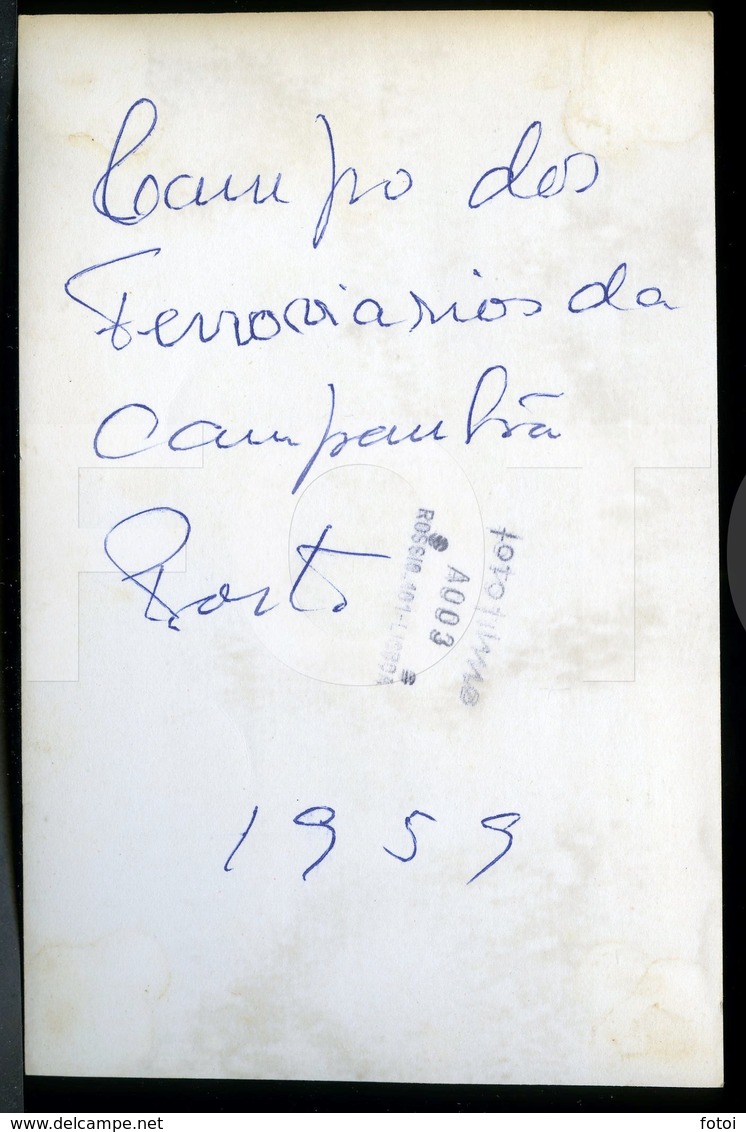 Campo dos
Ferroviarios da
Campanhã
Porto
fotofilme
A003
ROSSIO.101-LISBOA
1959
FOTO
delcampe.net
fotoi